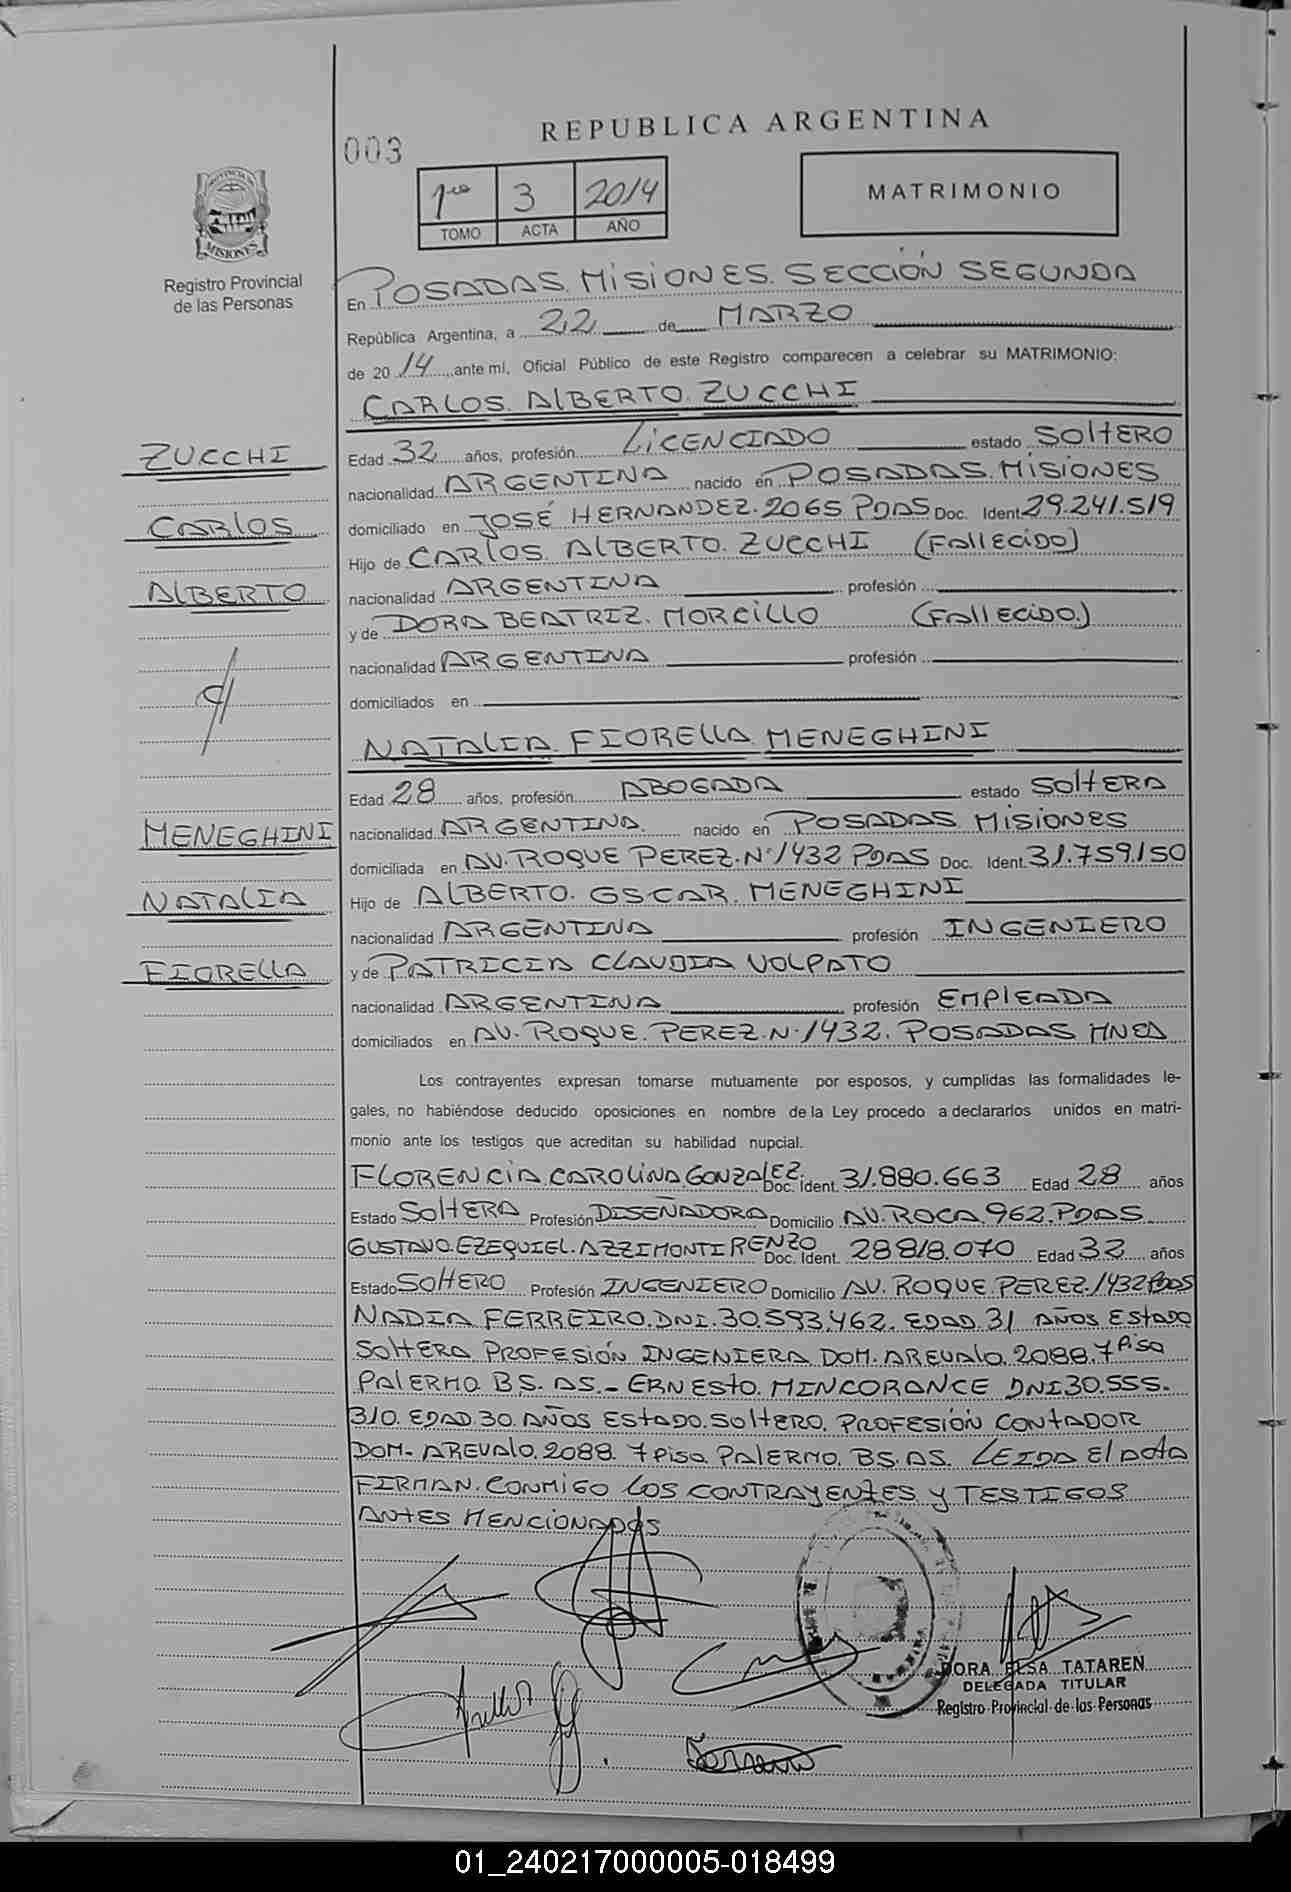 REPUBLICA ARGENTINA
003
1ro 3 2014
TOMO ACTA AÑO
MATRIMONIO
PROVINCIA DE
MISIONES
Registro Provincial
de las Personas
En POSADAS. MISIONES. SECCIÓN SEGUNDA
República Argentina, a 22 de MARZO
de 20 14 ante mí, Oficial Público de este Registro comparecen a celebrar su MATRIMONIO:
CARLOS. ALBERTO. ZUCCHI
ZUCCHI
CARLOS
ALBERTO
Edad 32 años, profesión LICENCIADO estado SOLTERO
nacionalidad ARGENTINA nacido en POSADAS. MISIONES
domiciliado en JOSÉ HERNANDEZ. 2065 PDAS Doc. Ident. 29.241.519
Hijo de CARLOS. ALBERTO. ZUCCHI (FALLECIDO)
nacionalidad ARGENTINA profesión
y de DORA BEATRIZ. MORCILLO (FALLECIDO.)
nacionalidad ARGENTINA profesión
domiciliados en
NATALIA. FIORELLA. MENEGHINI
MENEGHINI
NATALIA
FIORELLA
Edad 28 años, profesión ABOGADA estado SOLTERA
nacionalidad ARGENTINA. nacido en POSADAS. MISIONES
domiciliada en AV. ROQUE PEREZ. Nº 1432 PDAS Doc. Ident. 31.759.150
Hijo de ALBERTO. OSCAR. MENEGHINI
nacionalidad ARGENTINA profesión INGENIERO
y de PATRICIA CLAUDIA VOLPATO
nacionalidad ARGENTINA profesión EMPLEADA
domiciliados en AV. ROQUE. PEREZ. Nº 1432. POSADAS MNES
Los contrayentes expresan tomarse mutuamente por esposos, y cumplidas las formalidades le-
gales, no habiéndose deducido oposiciones en nombre de la Ley procedo a declararlos unidos en matri-
monio ante los testigos que acreditan su habilidad nupcial.
FLORENCIA. CAROLINA GONZALEZ. Doc. Ident. 31.880.663 Edad 28 años
Estado SOLTERA Profesión DISEÑADORA Domicilio AV. ROCA 962. PDAS
GUSTAVO. EZEQUIEL. AZZIMONTI RENZO Doc. Ident. 28818.070 Edad 32 años
Estado SOLTERO Profesión INGENIERO Domicilio AV. ROQUE. PEREZ. 1432 PDAS
NADIA FERREIRO. DNI. 30.593.462. EDAD. 31 AÑOS ESTADO
SOLTERA PROFESIÓN INGENIERA DOM. AREVALO. 2088. 7 PISO
PALERMO. BS. AS. - ERNESTO. MINCORANCE DNI 30.555.
310. EDAD. 30. AÑOS ESTADO. SOLTERO. PROFESIÓN CONTADOR
DOM- AREVALO. 2088. 7 PISO. PALERMO. BS. AS. LEIDA EL ACTA
FIRMAN. CONMIGO LOS CONTRAYENTES Y TESTIGOS
ANTES MENCIONADOS
DORA ELSA TATAREN
DELEGADA TITULAR
Registro Provincial de las Personas
01_240217000005-018499